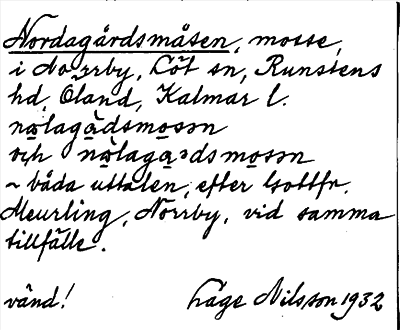 Nordagårdsmåsen, mosse,
i Norrby, Löt sn, Runstens
hd, Öland, Kalmar l.
nålagàdsmosən
och nålagaᵊdsmosən
~ båda uttalen, efter Gottfr.
Meurling, Norrby, vid samma
tillfälle.
vänd! Håge Nilsson 1932